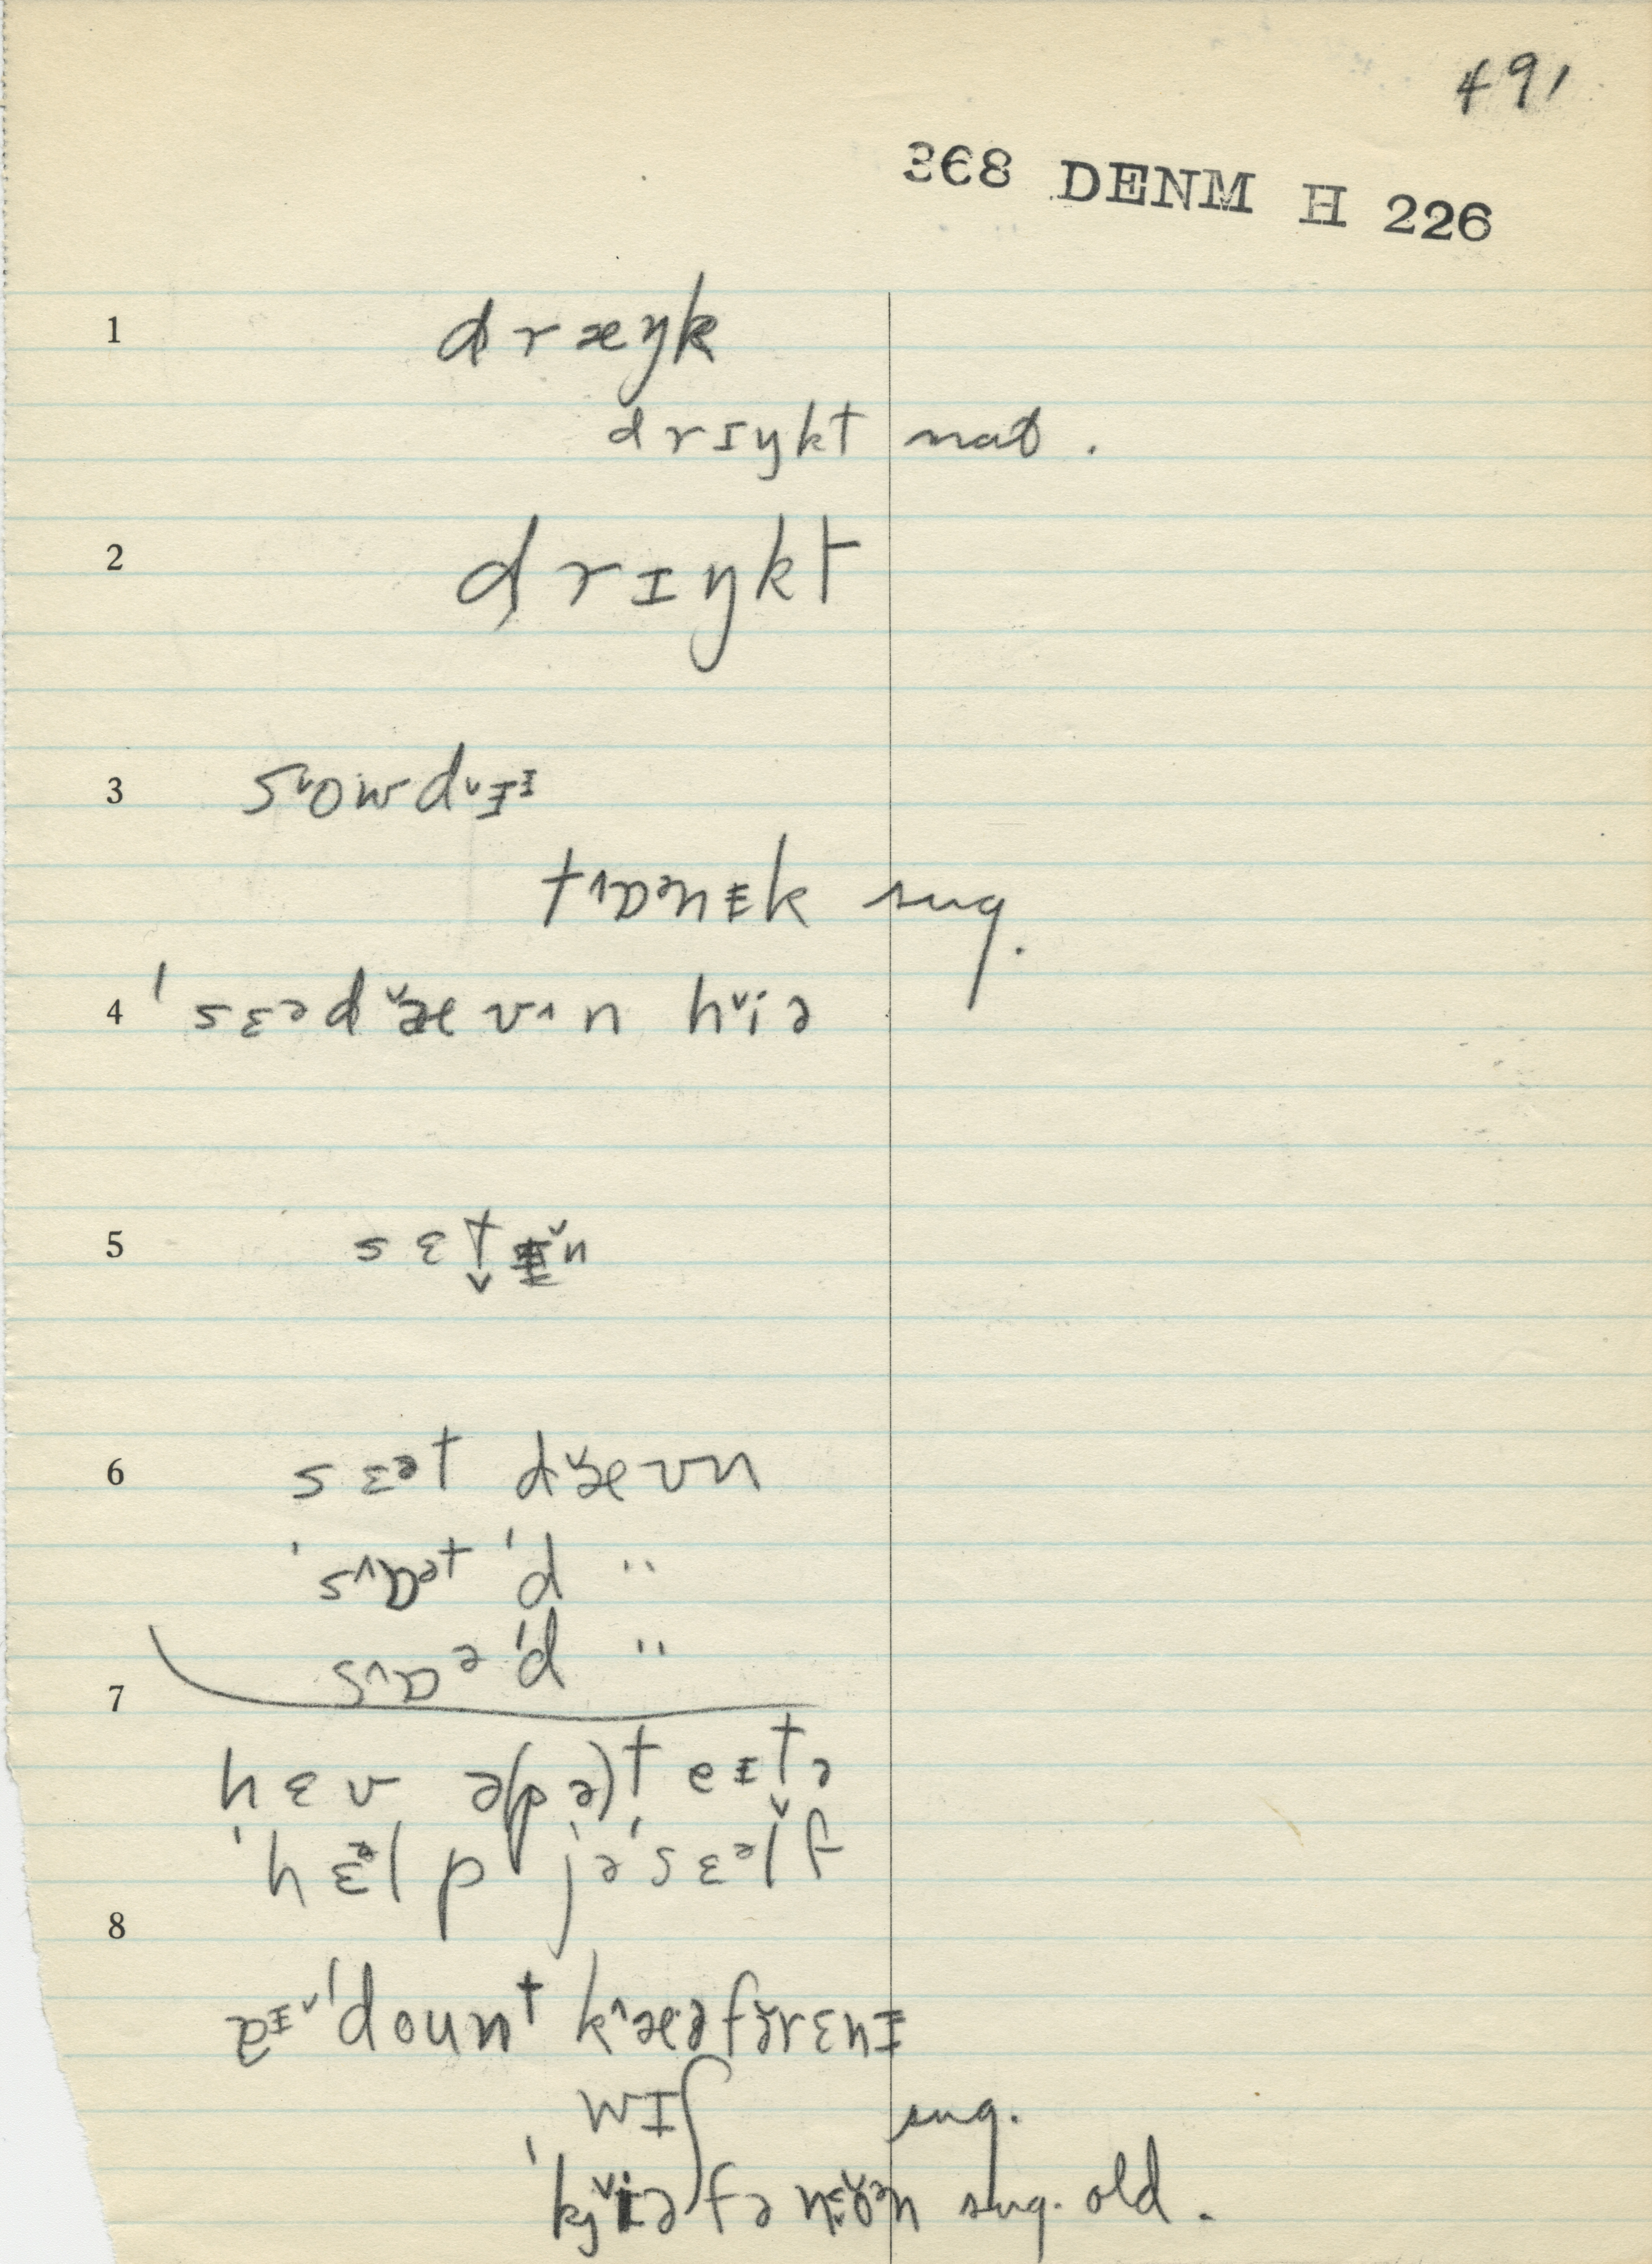 491
368 DENM H 226
1 dræŋk
drɪŋkt nat.
2 drɪŋkt
3 soʷwdɪɪ
tɒənɪk sug.
4 ˈsɛədævn hiə
5 sɛt
6 sɛət dævn
ˈsɒət ˈd "
sɒə ˈd "
7
hɛv ə(pə)teɪtə
ˈhɛəlp jəˈsɛəlf
8
ˈdount kæəfərɛnɪ
wɪʃ sug.
ˈkjiəfə sug. old.